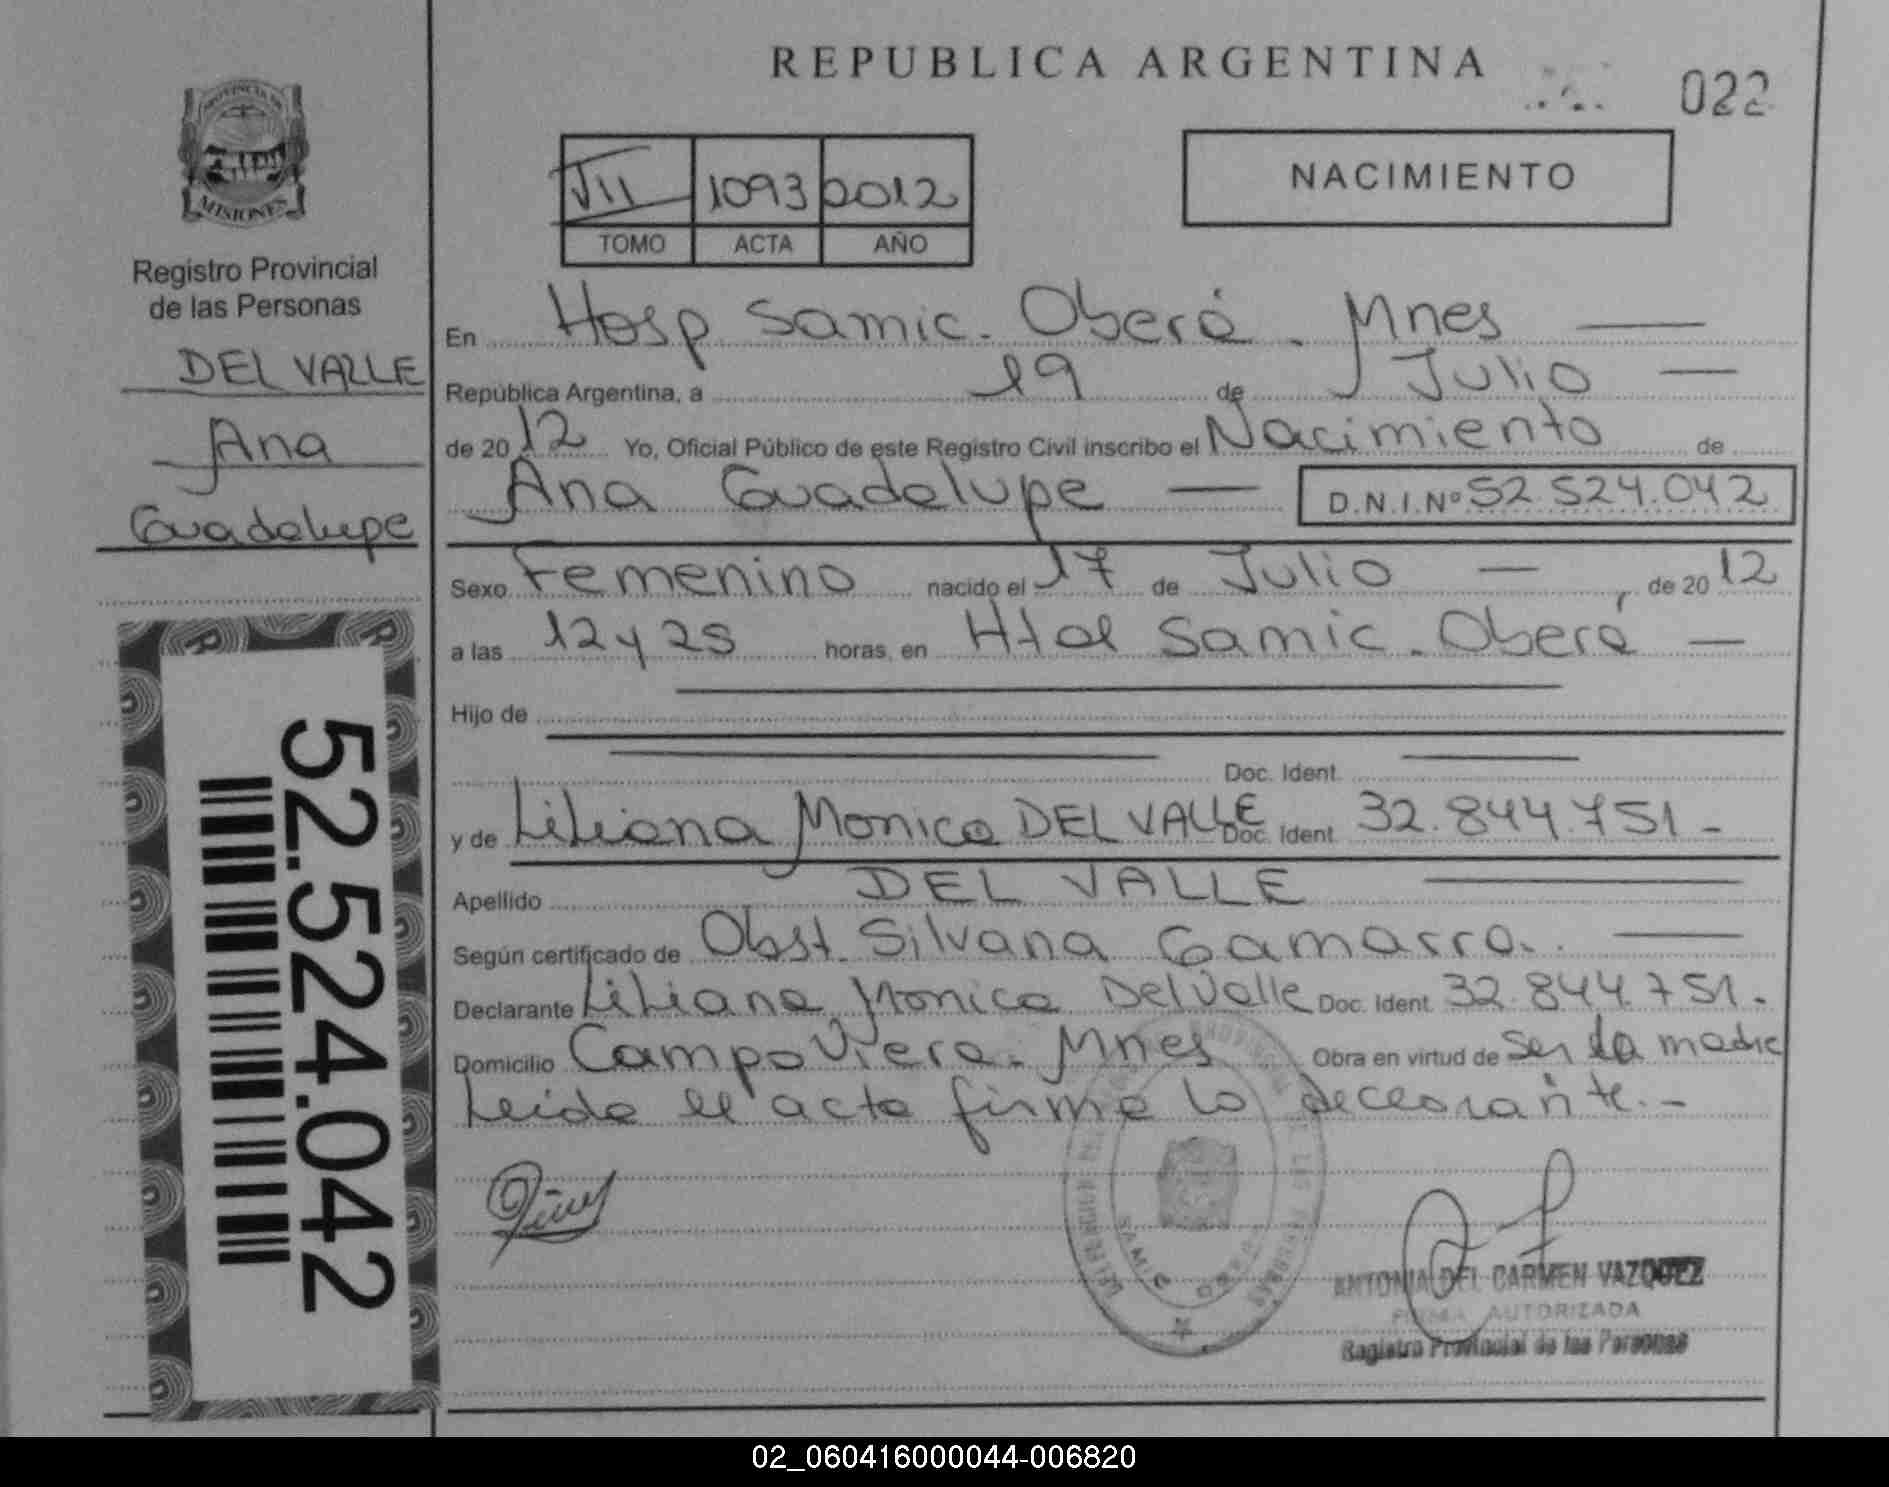 REPUBLICA ARGENTINA
022
PROVINCIA DE
MISIONES
Registro Provincial
de las Personas
DEL VALLE
Ana
Guadalupe
52.524.042
VII 1093 2012
TOMO ACTA AÑO
NACIMIENTO
En Hosp Samic. Oberá. Mnes
República Argentina, a 19 de Julio
de 2012 Yo, Oficial Público de este Registro Civil inscribo el Nacimiento de
Ana Guadalupe — D.N.I.Nº 52.524.042
Sexo Femenino nacido el 17 de Julio — de 2012
a las 12 y 25 horas, en Htal Samic. Oberá —
Hijo de
Doc. Ident.
y de Liliana Monica DEL VALLE Doc. Ident. 32.844.751 -
Apellido DEL VALLE
Según certificado de Obst. Silvana Gamarra.
Declarante Liliana Monica Del Valle Doc. Ident. 32.844.751.
Domicilio Campo Viera. Mnes Obra en virtud de ser la madre
Leida el acta firma la declarante.-
SAMIC OBERA
ANTONIA DEL CARMEN VAZQUEZ
FIRMA AUTORIZADA
Registro Provincial de las Personas
02_060416000044-006820